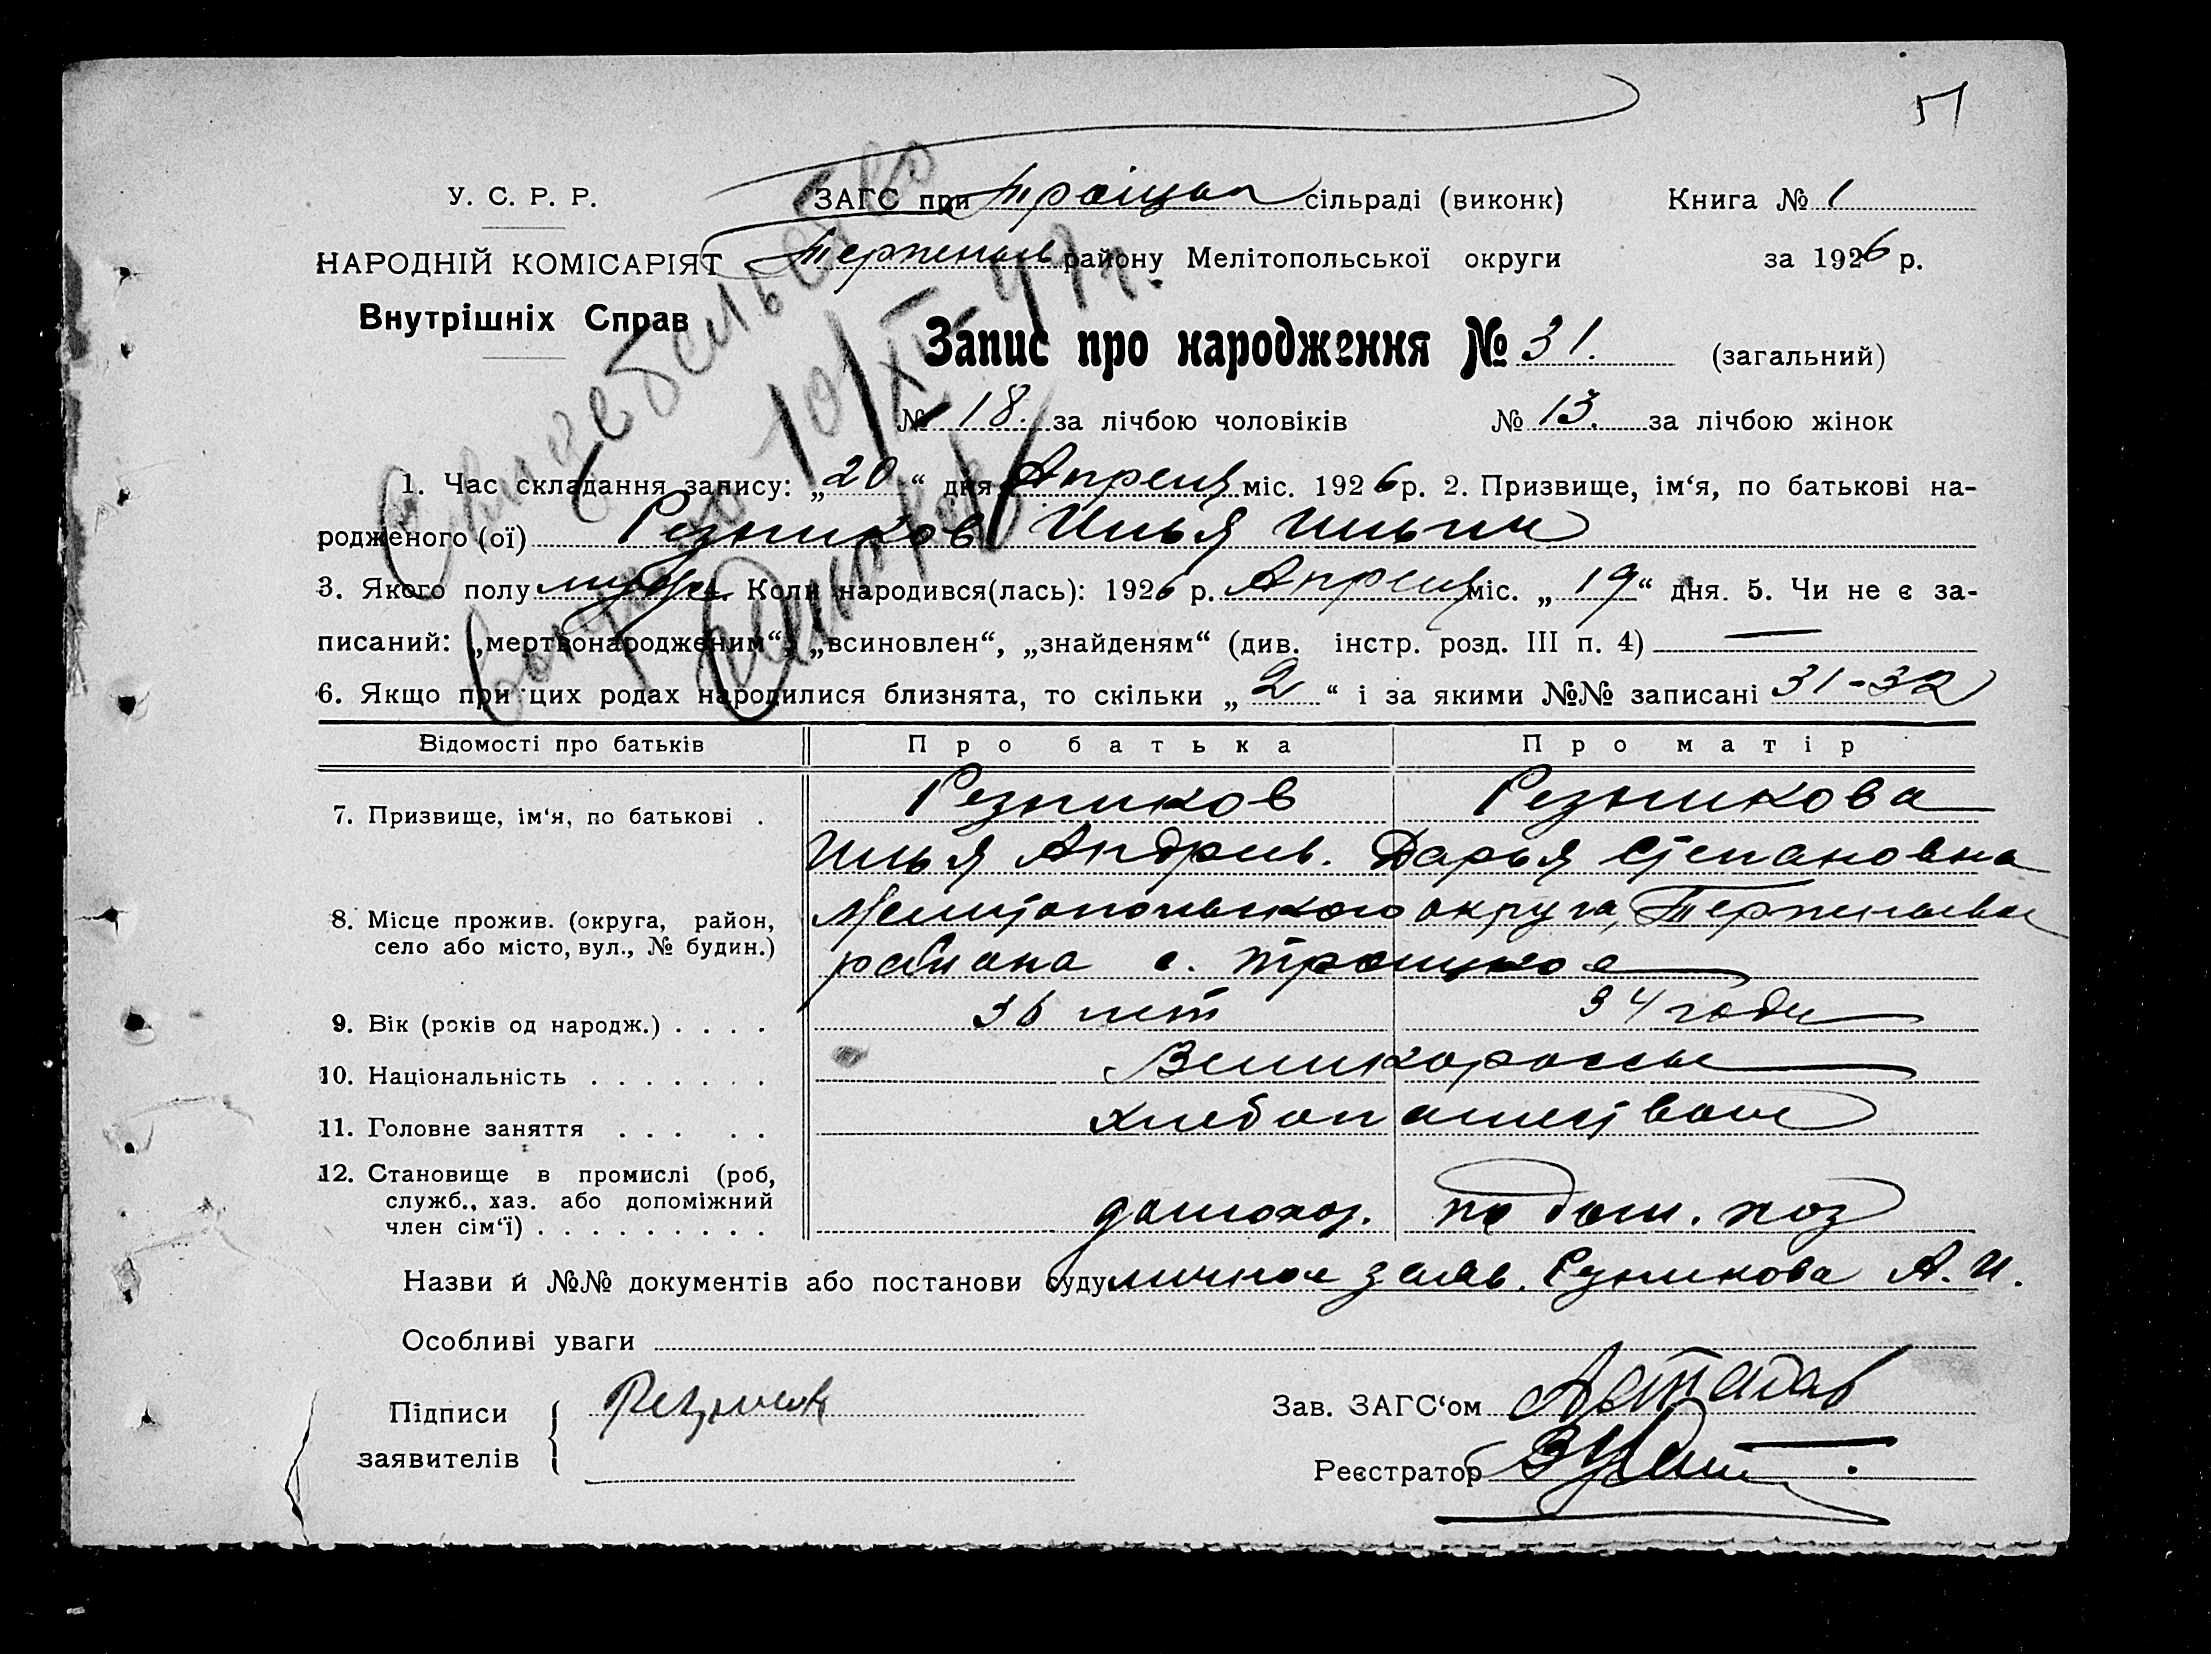 51
У. С. Р. Р. ЗАГС при Троїцком сільраді (виконк) Книга № 1
НАРОДНІЙ КОМІСАРІЯТ району Мелітопольської округи за 1926 р.
Внутрішніх Справ
Запис про народження № 31. (загальний)
№ 18. за лічбою чоловіків № 13. за лічбою жінок
Свидетельство
10/XI-47 г.
1. Час складання запису: „20“ дня Апреля міс. 1926 р. 2. Призвище, ім‘я, по батькові на-
родженого (ої) Резников Илья Ильич
3. Якого полу муж. 4. Коли народився(лась): 1926 р. Апреля міс. „19“ дня. 5. Чи не є за-
писаний: „мертвонародженим“, „всиновлен“, „знайденям“ (див. інстр. розд. III п. 4) —
6. Якщо при цих родах народилися близнята, то скільки „2“ і за якими №№ записані 31-32
Відомості про батьків Про батька Про матір
7. Призвище, ім‘я, по батькові . Резников Резникова
Илья Андреев. Дарья Степановна
8. Місце прожив. (округа, район, Мелитопольского округа,
село або місто, вул., № будин.) района с. Троицкое
9. Вік (років од народж.) . . . . 36 лет 34 года
10. Національність . . . . . . . Великороссы
11. Головне заняття . . . . . хлебопашеством
12. Становище в промислі (роб,
служб., хаз. або допоміжний
член сім‘ї) . . . . . . . . . домохоз. по дом. хоз
Назви й №№ документів або постанови суду личное заяв. Резникова А. И.
Особливі уваги
Підписи Резников Зав. ЗАГС‘ом
заявителів Реєстратор